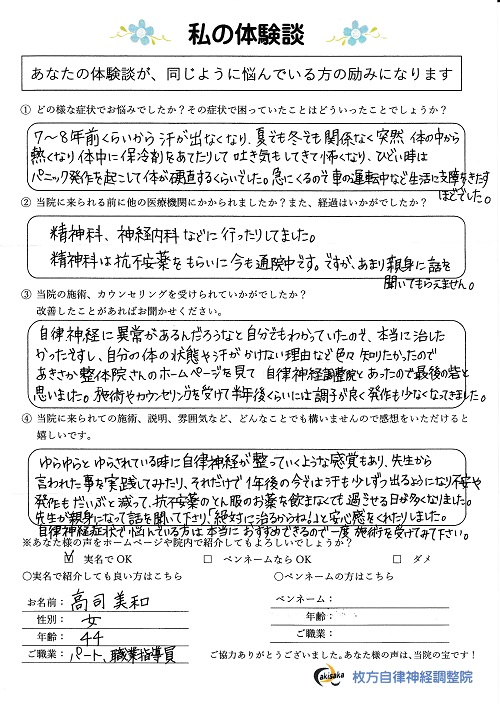 私の体験談
あなたの体験談が、同じように悩んでいる方の励みになります
① どの様な症状でお悩みでしたか？その症状で困っていたことはどういったことでしょうか？
7〜8年前くらいから汗が出なくなり、夏でも冬でも関係なく突然 体の中から
熱くなり体中に保冷剤をあてたりして 吐き気もしてきて怖くなり、ひどい時は
パニック発作を起こして体が硬直するくらいでした。急にくるので車の運転中など生活に支障をきたす
ほどでした。
② 当院に来られる前に他の医療機関にかかられましたか？また、経過はいかがでしたか？
精神科、神経内科などに行ったりしてました。
精神科は抗不安薬をもらいに今も通院中です。ですが、あまり親身に話を
聞いてもらえません。
③ 当院の施術、カウンセリングを受けられていかがでしたか？
改善したことがあればお聞かせください。
自律神経に異常があるんだろうなと自分でもわかっていたので、本当に治した
かったですし、自分の体の状態や汗がかけない理由など色々知りたかったので
あきさか整体院さんのホームページを見て 自律神経調整院とあったので最後の砦と
思いました。施術やカウンセリングを受けて半年後くらいには調子が良く発作も少なくなってきました。
④ 当院に来られての施術、説明、雰囲気など、どんなことでも構いませんので感想をいただけると
嬉しいです。
ゆらゆらとゆらされている時に自律神経が整っていくような感覚もあり、先生から
言われた事を実践してみたり、それだけで1年後の今では汗も少しずつ出るようになり不安や
発作もだいぶと減って、抗不安薬のとん服のお薬を飲まなくても過こせる日が多くなりました。
先生が親身になって話を聞いて下さり「絶対に治るからね！」と安心感をくれたりしました。
自律神経症状で悩んでいる方は本当におすすめできるので一度施術を受けてみて下さい。
※あなた様の声をホームページや院内で紹介してもよろしいでしょうか？
☑ 実名でOK □ ペンネームならOK □ ダメ
○実名で紹介しても良い方はこちら ○ペンネームの方はこちら
お名前： 高司 美和 ペンネーム：
性別： 女 年齢：
年齢： 44 ご職業：
ご職業： パート、職業指導員
ご協力ありがとうございました。あなた様の声は、当院の宝です！
akisaka 枚方自律神経調整院